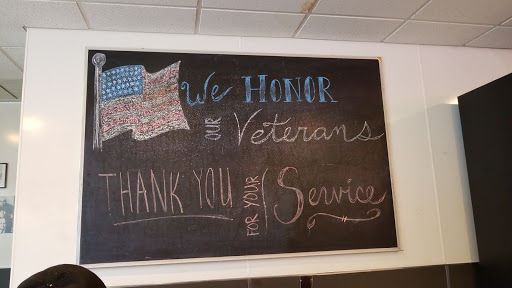 We HONOR
OUR Veterans
THANK YOU FOR YOUR Service